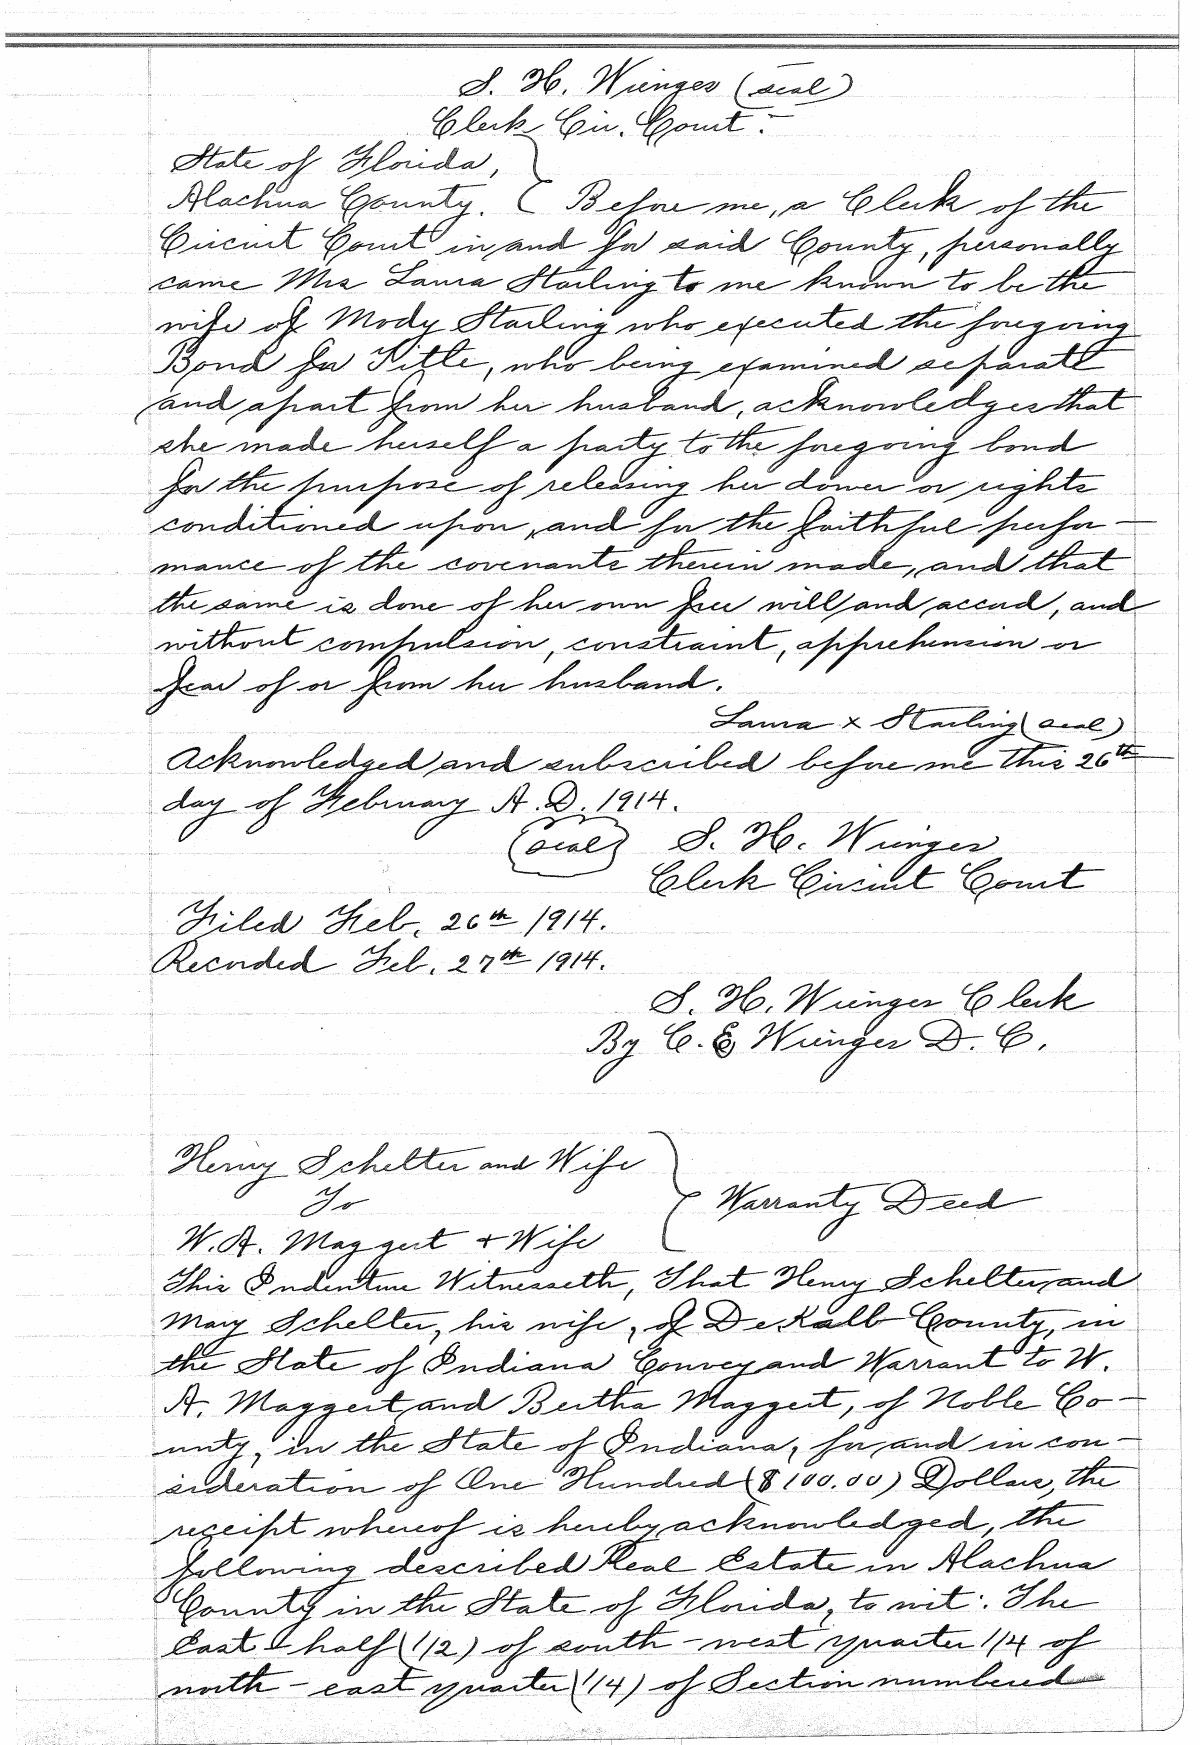 S. H. Wienges (seal)
Clerk Cir. Court.-
State of Florida,
Alachua County. Before me, a Clerk of the
Circuit Court in and for said County, personally
came Mrs Laura Starling to me known to be the
wife of Mody Starling who executed the foregoing
Bond for Title, who being examined separate
and apart from her husband, acknowledges that
she made herself a party to the foregoing bond
for the purpose of releasing her dower or rights
conditioned upon, and for the faithful perfor-
mance of the covenants therein made, and that
the same is done of her own free will and accord, and
without compulsion, constraint, apprehension or
fear of or from her husband.
Laura x Starling (seal)
Acknowledged and subscribed before me this 26th
day of February A. D. 1914.
(seal) S. H. Wienges
Clerk Circuit Court
Filed Feb. 26th 1914.
Recorded Feb. 27th 1914.
S. H. Wienges Clerk
By C. E Wienges D. C.
Henry Schelter and Wife
To
Warranty Deed
W. A. Maggert + Wife
This Indenture Witnesseth, That Henry Schelter and
Mary Schelter, his wife, of De Kalb County, in
the State of Indiana Convey and Warrant to W.
A. Maggert and Bertha Maggert, of Noble Co-
unty, in the State of Indiana, for and in con-
sideration of One Hundred ($100.00) Dollars, the
receipt whereof is hereby acknowledged, the
following described Real Estate in Alachua
County in the State of Florida, to wit: The
East - half (1/2) of south - west quarter 1/4 of
north - east quarter (1/4) of Section numbered